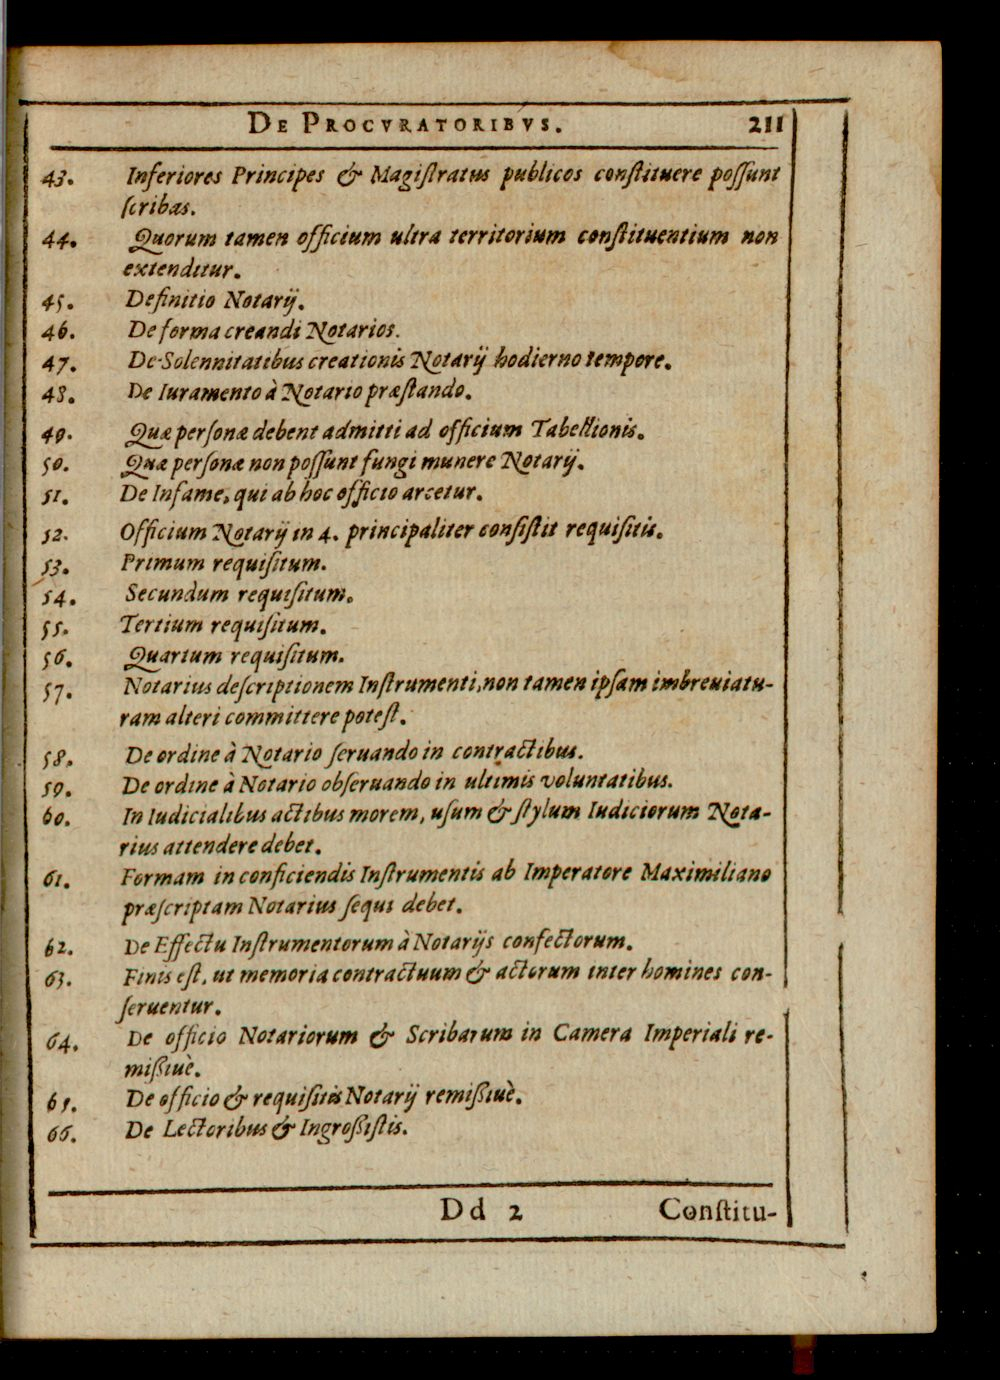 DE PROCVRATORIBVS. 211
43. Inferiores Principes & Magiſtratus publicos conſtituere poſſunt
ſcribas.
44. Quorum tamen officium ultra territorium conſtituentium non
extenditur.
45. Definitio Notarij.
46. De forma creandi Notarios.
47. De Solennitatibus creationis Notarij hodierno tempore.
48. De Iuramento à Notario præſtando.
49. Quæ perſonæ debent admitti ad officium Tabellionis.
50. Quæ perſonæ non poſſunt fungi munere Notarij.
51. De Infame, qui ab hoc officio arcetur.
52. Officium Notarij in 4. principaliter conſiſtit requiſitis.
53. Primum requiſitum.
54. Secundum requiſitum.
55. Tertium requiſitum.
56. Quartum requiſitum.
57. Notarius deſcriptionem Inſtrumenti, non tamen ipſam imbreuiatu-
ram alteri committere poteſt.
58. De ordine à Notario ſeruando in contractibus.
59. De ordine à Notario obſeruando in ultimis voluntatibus.
60. In Iudicialibus actibus morem, uſum & ſtylum Iudiciorum Nota-
rius attendere debet.
61. Formam in conficiendis Inſtrumentis ab Imperatore Maximiliano
præſcriptam Notarius ſequi debet.
62. De Effectu Inſtrumentorum à Notarijs confectorum.
63. Finis eſt, ut memoria contractuum & actorum inter homines con-
ſeruentur.
64. De officio Notariorum & Scribarum in Camera Imperiali re-
mißiuè.
65. De officio & requiſitis Notarij remißiuè.
66. De Lectoribus & Ingroßiſtis.
Dd 2 Conſtitu-